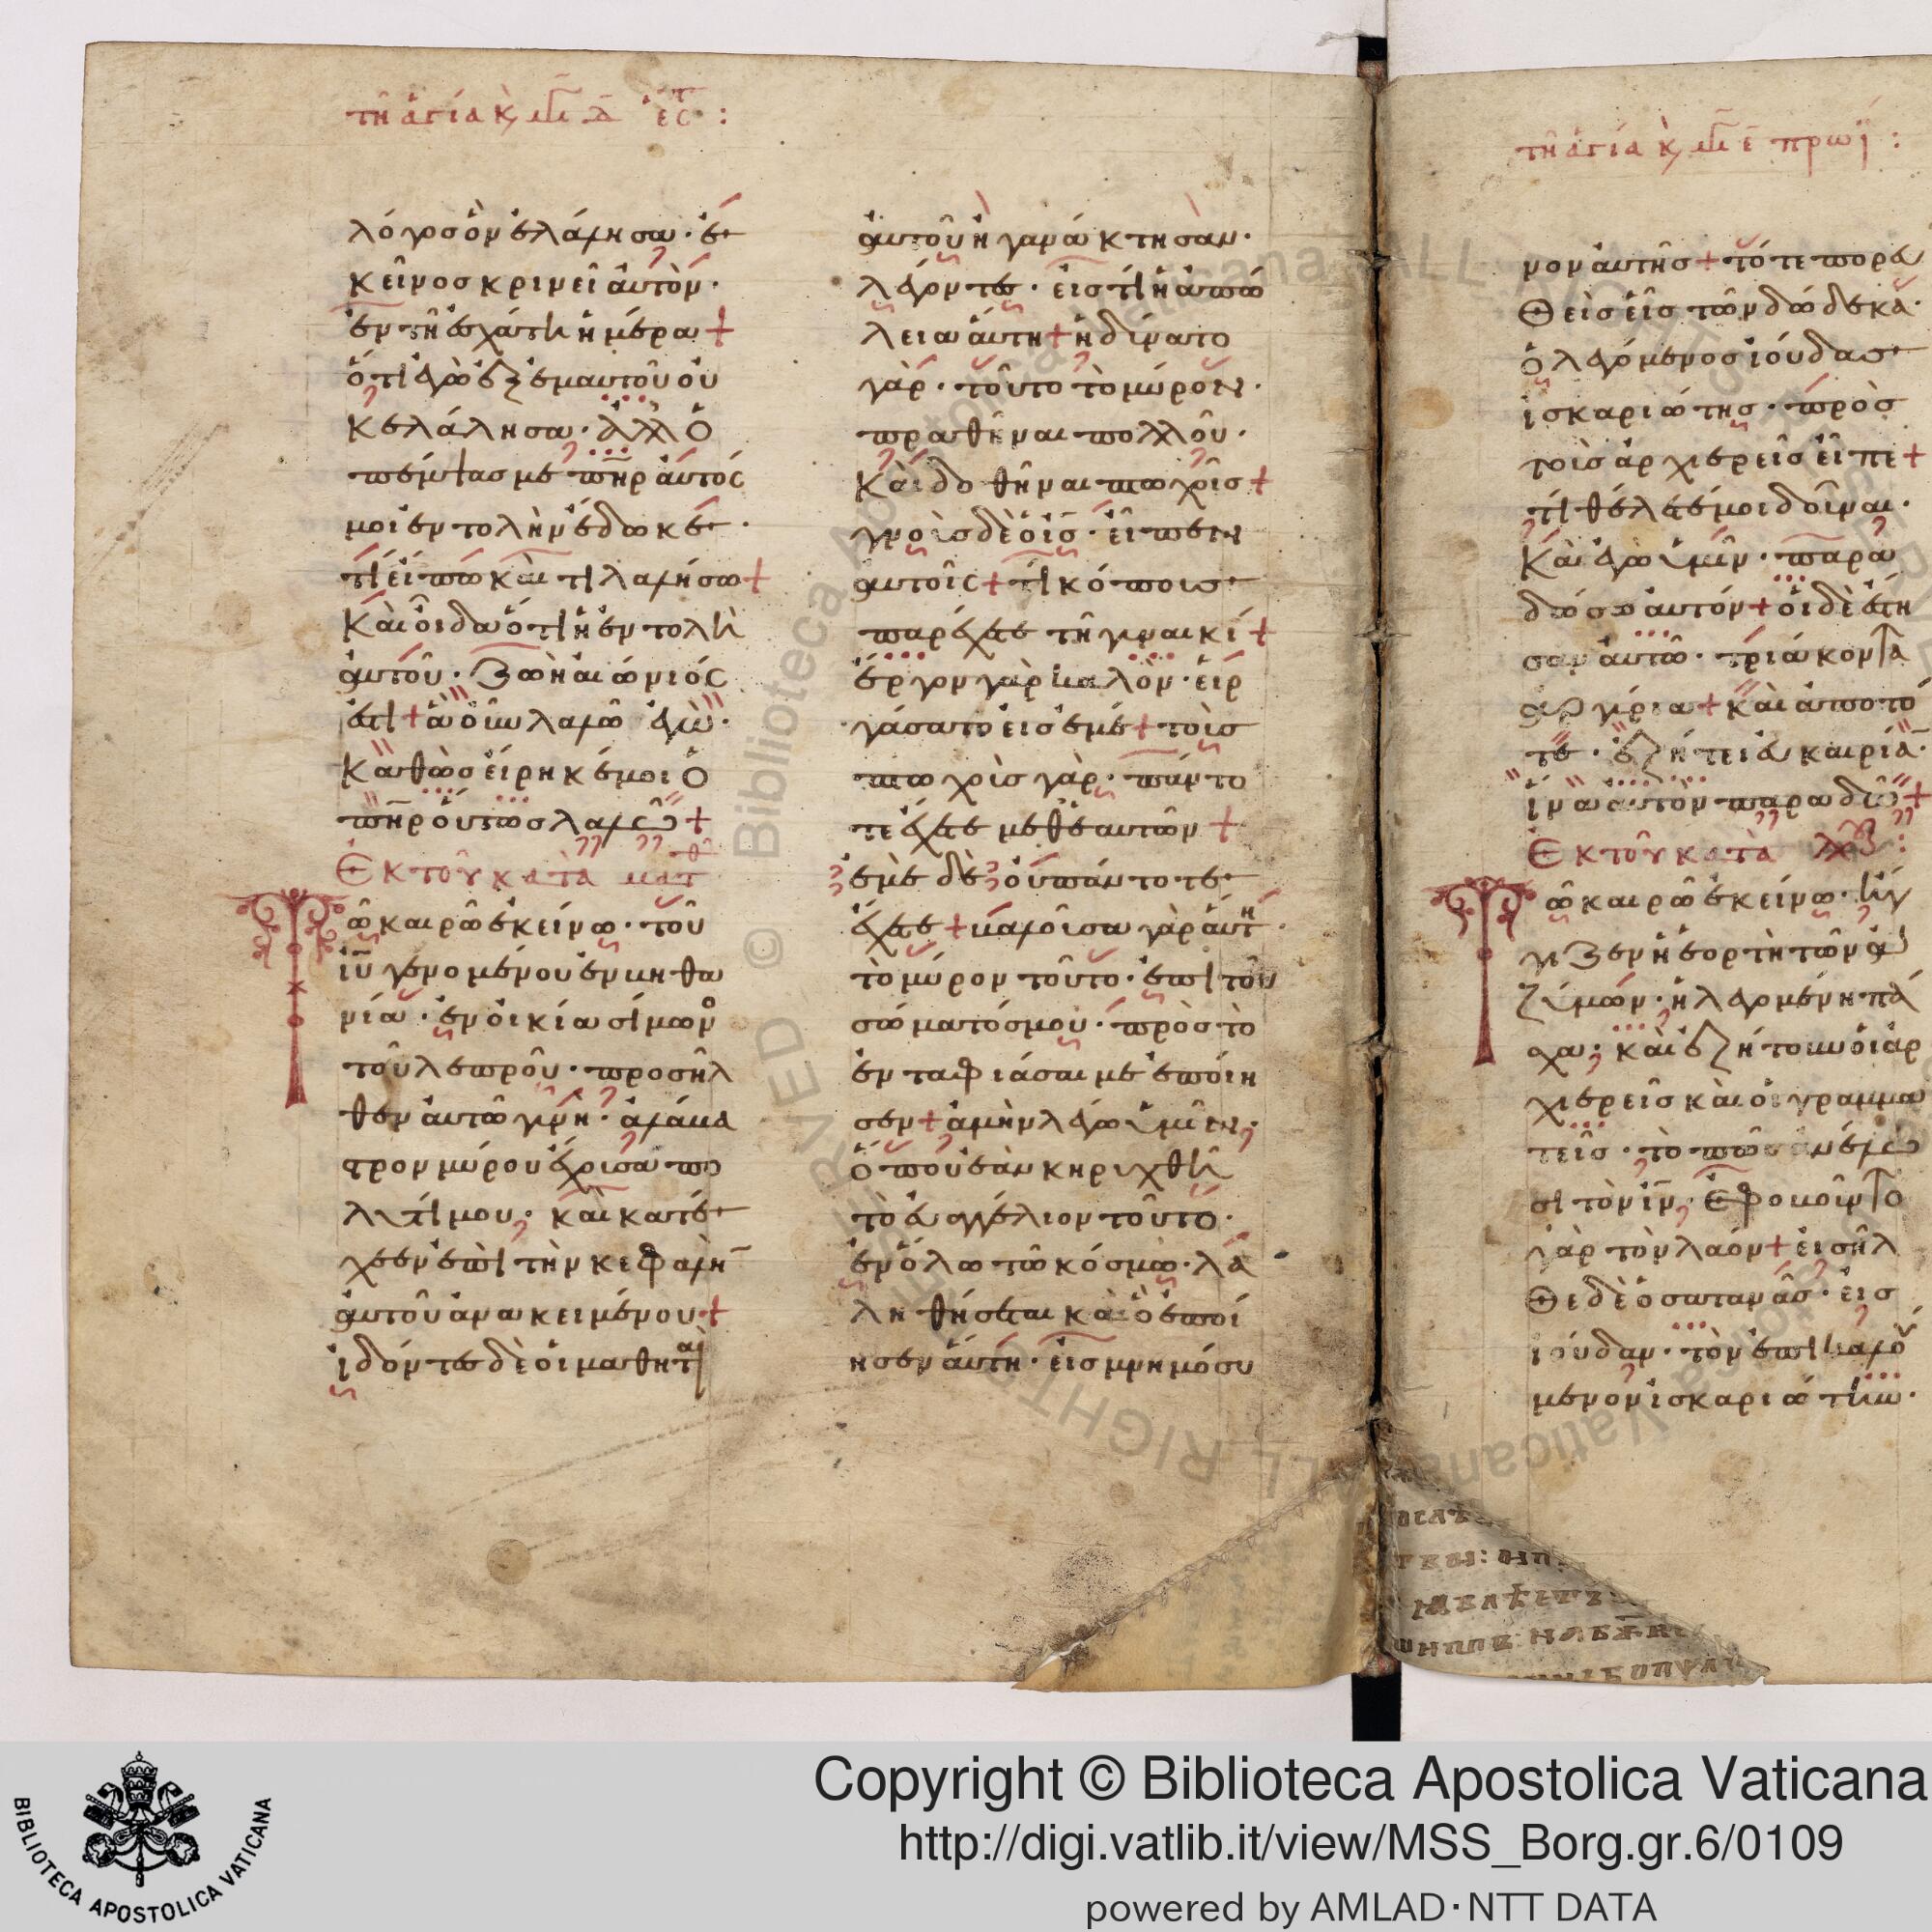 τῆ ἁγία κ μ δ ἑς :
λόγοσ ὃν ἐλάλησα · ἐ
κεῖνοσ κρινεῖ ἀυτὸν ·
ἐν τῆ ἐσχάτη ἡμέρα +
ὅτι ἐγὼ ἐξ ἐμαυτοῦ οὐ
κ ἐλάλησα · ἀλλ ὁ
πέμψασ με πηρ ἀυτός
μοι ἐντολὴν ἔδωκε ·
τί εἴπω καὶ τί λαλήσω +
Καὶ οἶδα ὅτι ἡ ἐντολὴ
ἀυτοῦ · ζωὴ αιώνιός
ἐστι + ἃ οὖν λαλῶ ἐγὼ ·
Καθὼσ είρηκέ μοι ὁ
πηρ ὅυτωσ λαλῶ +
Εκ τοῦ κατὰ ματθ
Τῶ καιρῶ ἐκείνω · τοῦ
ιυ γενομένου ἐν βηθα
νία · ἐν οἰκία σίμων
τοῦ λεπροῦ · προσῆλ
θεν ἀυτῶ γυνὴ · ἀλάβα
στρον μύρου ἔχουσα πο
λυτίμου · καὶ κατέ
χεεν ἐπὶ τὴν κεφαλὴ
ἀυτοῦ ἀνακειμένου +
ἰδόντεσ δὲ ὁι μαθηταὶ
ἀυτοῦ ἠγανάκτησαν ·
λέγοντεσ · εἰς τί ἡ ἀπώ
λεια ἅυτη + ἠδύνατο
γὰρ · τοῦτο τὸ μύρον ·
πραθῆναι πολλοῦ ·
Καὶ δοθῆναι πτωχοῖς +
γνοὺσ δὲ ὁ ις · εἶπεν
ἀυτοῖς + τί κόπουσ
παρέχετε τῆ γυναικί +
ἔργον γὰρ καλὸν · εἰρ
γάσατο εἰσ ἐμέ + τοὺσ
πτωχοὺσ γὰρ · πάντο
τε ἔχετε μεθ ἑαυτῶν +
ἐμὲ δὲ ὀυ πάντοτε
ἔχετε + βαλοῦσα γὰρ ἅυτη ·
τὸ μύρον τοῦτο · ἐπὶ τοῦ
σώματόσ μου · πρὸσ τὸ
ἐνταφιάσαι με ἐποίη
σεν + ἀμὴν λέγω ὑμῖν ·
ὅπου ἐὰν κηρυχθῆ
τὸ ἐυαγγέλιον τοῦτο ·
ἐν ὅλω τῶ κόσμω · λα
ληθήσεται καὶ ὃ ἐποί
ησεν ἅυτη · εἰσ μνημόσυ
τῆ ἁγία κ μ ε πρωΐ :
νον ἀυτῆσ + τότε πορευ
θεὶσ εἷσ τῶν δώδεκα ·
ὁ λεγόμενοσ ἰούδασ
ἰσκαριώτησ · πρὸσ
τοὺσ ἀρχιερεῖσ εἶπε +
τί θέλετέ μοι δοῦναι ·
Καὶ ἐγὼ ὑμῖν · παρα
δώσω ἀυτόν + ὁι δὲ ἔστη
σαν ἀυτῶ · τριάκοντα
ἀργύρια + καὶ ἀπὸ τό
τε · ἐζήτει ἐυκαιρία ·
ἵνα ἀυτὸν παραδῶ +
Εκ τοῦ κατὰ λουκ :
Τῶ καιρῶ ἐκείνω · ἤγ
γιζεν ἡ ἑορτὴ τῶν ἀ
ζύμων · ἡ λεγομένη πά
σχα · καὶ ἐζήτουν ὁι ἀρ
χιερεῖσ καὶ ὁι γραμμα
τεῖσ · τὸ πῶσ ἀνέλω
σι τὸν ιν · ἐφοβοῦντο
γὰρ τὸν λαόν + εἰσῆλ
θε δὲ ὁ σατανᾶσ · εἰσ
ἰούδαν · τὸν ἐπικαλού
μενον ἰσκαριώτην ·
Copyright © Biblioteca Apostolica Vaticana
http://digi.vatlib.it/view/MSS_Borg.gr.6/0109
powered by AMLAD·NTT DATA
BIBLIOTECA APOSTOLICA VATICANA